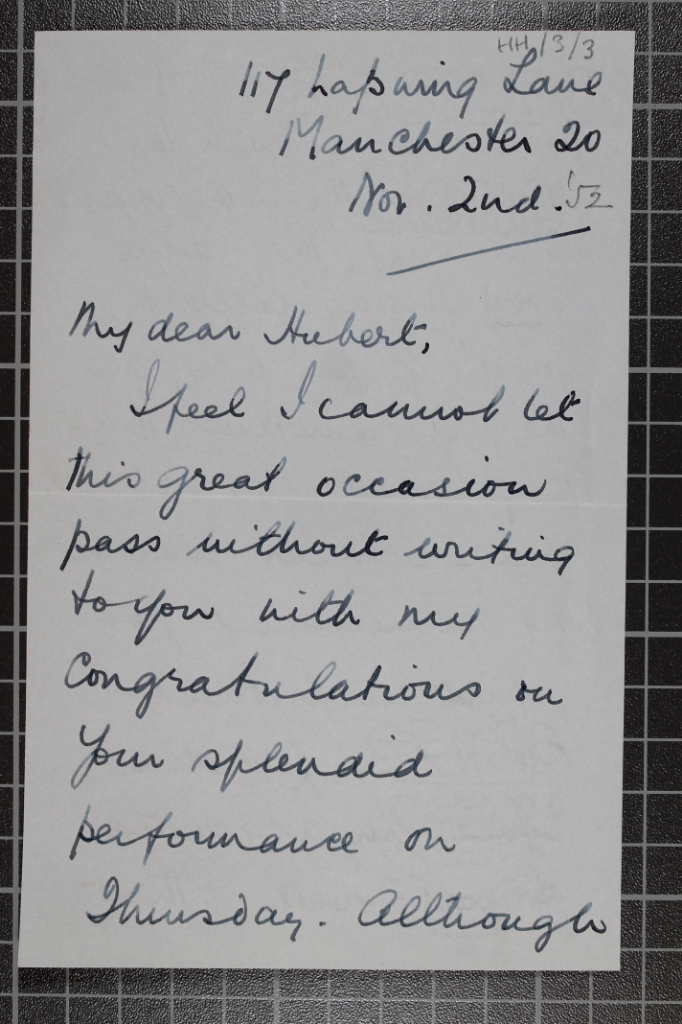 HH/3/3
117 Lapwing Lane
Manchester 20
Nov. 2nd. '52
My dear Hubert,
I feel I cannot let
this great occasion
pass without writing
to you with my
Congratulations on
your splendid
performance on
Thursday. Although